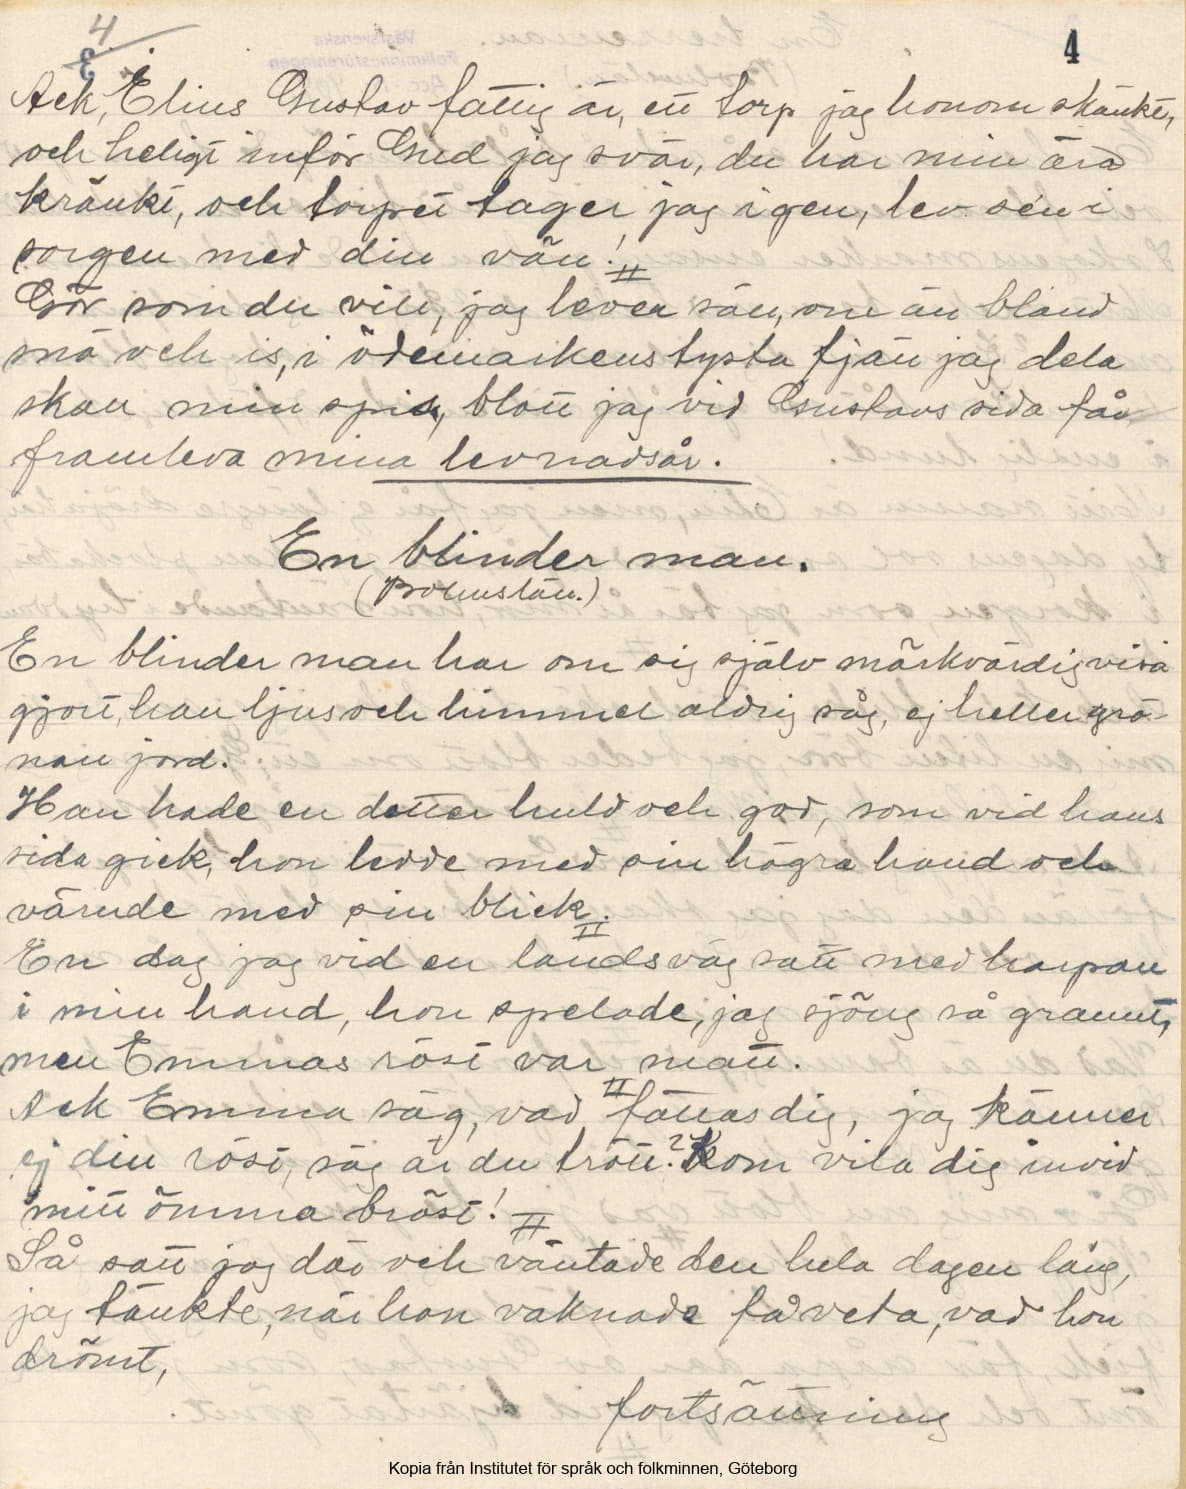 4
3
4
Ack, Elius Gustav fattig är, ett torp jag honom skänkt,
och heligt inför Gud jag svär, du har min ära
kränkt, och torpet tager jag igen, lev sen i
sorgen med din vän!
Gör som du vill, jag lever sän, om än bland
snö och is, i ödemarkens tysta tjäll jag dela
skall min spis, blott jag vid Gustavs sida får
framleva mina levnadsår.
En blinder man.
(Bohuslän.)
En blinder man har om sig själv märkvärdig visa
gjort, han ljus och himmel aldrig såg, ej heller grö-
nan jord.
Han hade en dotter huld och god, som vid hans
sida gick, hon ledde med sin högra hand och
värnde med sin blick.
En dag jag vid en landsväg satt med harpan
i min hand, hon spelade, jag sjöng så grannt,
men Emmas röst var matt.
Ack Emma säg, vad fattas dig, jag känner
ej din röst, säg är du trött? Kom vila dig invid
mitt ömma bröst!
Så satt jag där och väntade den hela dagen lång,
jag tänkte, när hon vaknade få veta, vad hon
drömt,
fortsättning
Kopia från Institutet för språk och folkminnen, Göteborg